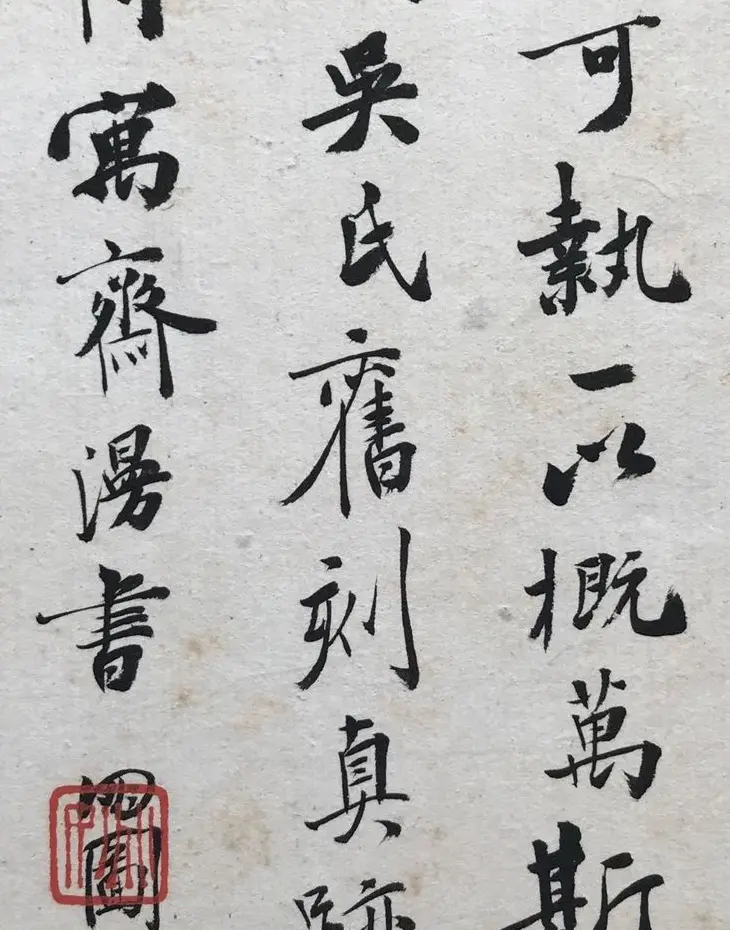 可執一以概萬斯
吳氏舊刻真跡
寓齋漫書